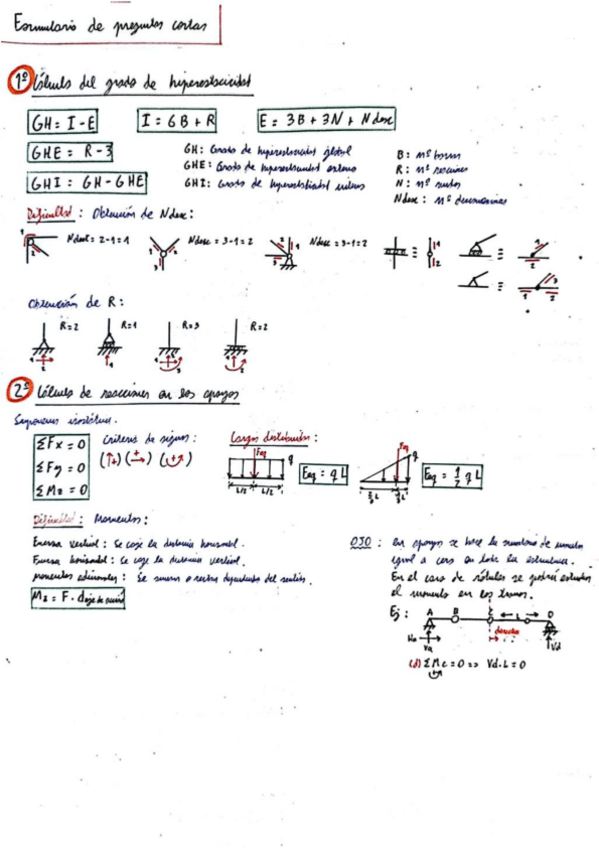 Formulario de preguntas cortas
1º Cálculo del grado de hiperestaticidad
GH = I - E
I = 6B + R
E = 3B + 3N + Ndesc
GHE = R - 3
GHI = GH - GHE
GH: Grado de hiperestaticidad global
GHE: Grado de hiperestaticidad externo
GHI: Grado de hiperestaticidad interno
B: nº barras
R: nº reacciones
N: nº nudos
Ndesc: nº desconexiones
Dificultad: Obtención de Ndesc:
1 2 Ndesc = 2-1=1
1 2 3 Ndesc = 3-1=2
1 2 3 Ndesc = 3-1=2
≡ 1 2
≡ 1 2
≡ 1 2
Obtención de R:
R=2 R=1 R=3 R=2
1 2 1 1 2 3 1 2
2º Cálculo de reacciones en los apoyos
Suponemos isostática.
ΣFx = 0
ΣFy = 0
ΣMz = 0
Criterio de signos:
(↑+) (→+) (↺+)
Cargas distribuidas:
Feq q
L/2 L/2
Feq = q L
Feq q
2/3 L 1/3 L
Feq = 1/2 q L
Dificultad: Momentos:
Fuerza vertical: Se coge la distancia horizontal.
Fuerza horizontal: Se coge la distancia vertical.
Momentos adicionales: Se suman o restan dependiendo del sentido.
Mz = F · d eje de acción
OJO: En apoyos se hace la sumatoria de momentos
igual a cero en toda la estructura.
En el caso de rótulas se podrá estudiar
el momento en los tramos.
Ej: A B C L D
derecha
Ha Va Vd
(d) ΣMc = 0 => Vd·L = 0